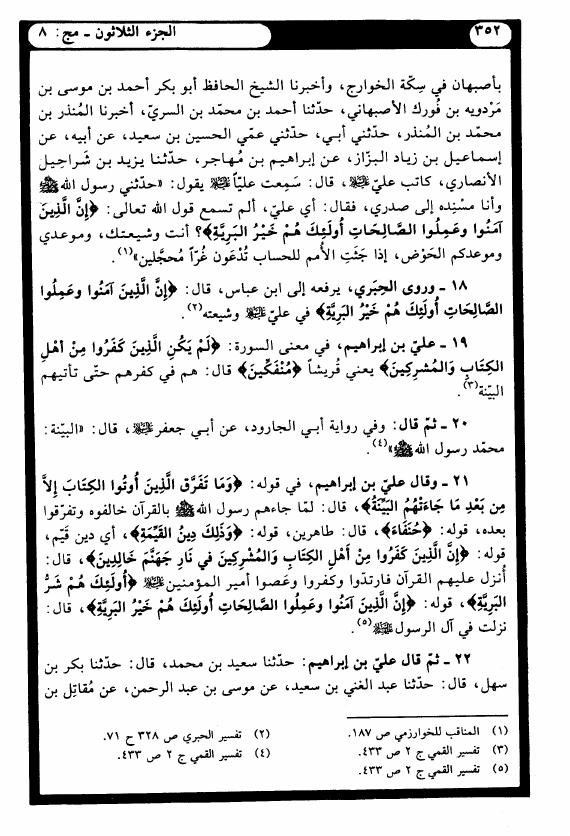 ٣٥٢
الجزء الثلاثون ـ مج: ٨
بأصبهان في سِكّة الخوارج، وأخبرنا الشيخ الحافظ أبو بكر أحمد بن موسى بن
مَرْدويه بن فُورك الأصبهاني، حدّثنا أحمد بن محمّد بن السريّ، أخبرنا المُنذر بن
محمّد بن المُنذر، حدّثني أبي، حدّثني عمّي الحسين بن سعيد، عن أبيه، عن
إسماعيل بن زياد البزّاز، عن إبراهيم بن مُهاجر، حدّثنا يزيد بن شَراحيل
الأنصاري، كاتب عليّ ﷺ، قال: سَمِعت عليّاً ﷺ يقول: «حدّثني رسول الله ﷺ
وأنا مسْنِده إلى صدري، فقال: أي عليّ، ألم تسمع قول الله تعالى: ﴿إِنَّ الَّذِينَ
آمَنُوا وعَمِلُوا الصَّالِحَاتِ أُولَئِكَ هُم خَيْرُ البَرِيَّةِ﴾؟ أنت وشيعتك، وموعدي
وموعدكم الحَوْض، إذا جَثَتِ الأُمم للحساب تُدْعَون غُرّاً مُحجَّلين»(١).
١٨ ـ وروى الحِبَري، يرفعه إلى ابن عباس، قال: ﴿إِنَّ الَّذِينَ آمَنُوا وعَمِلُوا
الصَّالِحَاتِ أُولَئِكَ هُمْ خَيْرُ البَرِيَّةِ﴾ في عليّ ﷺ وشيعته(٢).
١٩ ـ عليّ بن إبراهيم، في معنى السورة: ﴿لَمْ يَكُنِ الَّذِينَ كَفَرُوا مِنْ أهْلِ
الكِتَابِ والْمُشرِكِينَ﴾ يعني قُريشاً ﴿مُنْفَكِّينَ﴾ قال: هم في كفرهم حتّى تأتيهم
البيّنة(٣).
٢٠ ـ ثمّ قال: وفي رواية أبي الجارود، عن أبي جعفر ﷺ، قال: «البيّنة:
محمّد رسول الله ﷺ»(٤).
٢١ ـ وقال عليّ بن إبراهيم، في قوله: ﴿وَمَا تَفَرَّق الَّذِينَ أُوتُوا الكِتَابَ إلاَّ
مِن بَعْدِ مَا جَاءَتْهُمُ البَيِّنَةُ﴾، قال: لمّا جاءهم رسول الله ﷺ بالقرآن خالفوه وتفرّقوا
بعده، قوله: ﴿حُنَفَاءَ﴾، قال: طاهرين، قوله: ﴿وَذَلِكَ دِينُ القَيِّمَةِ﴾، أي دين قيّم،
قوله: ﴿إِنَّ الَّذِينَ كَفَرُوا مِنْ أهْلِ الكِتَابِ وَالمُشْرِكِينَ في نَارِ جَهَنَّمَ خَالِدِينَ﴾، قال:
أُنزل عليهم القرآن فارتدّوا وكفروا وعَصوا أمير المؤمنين ﷺ ﴿أُولَئِكَ هُمْ شَرُّ
البَرِيَّةِ﴾، قوله: ﴿إِنَّ الَّذِينَ آمَنُوا وعَمِلُوا الصَّالِحَاتِ أُولَئِكَ هُمْ خَيْرُ البَرِيَّةِ﴾، قال:
نزلت في آل الرسول ﷺ(٥).
٢٢ ـ ثمّ قال عليّ بن إبراهيم: حدّثنا سعيد بن محمد، قال: حدّثنا بكر بن
سهل، قال: حدّثنا عبد الغني بن سعيد، عن موسى بن عبد الرحمن، عن مُقاتِل بن
(١) المناقب للخوارزمي ص ١٨٧.
(٢) تفسير الحبري ص ٣٢٨ ح ٧١.
(٣) تفسير القمي ج ٢ ص ٤٣٣.
(٤) تفسير القمي ج ٢ ص ٤٣٣.
(٥) تفسير القمي ج ٢ ص ٤٣٣.